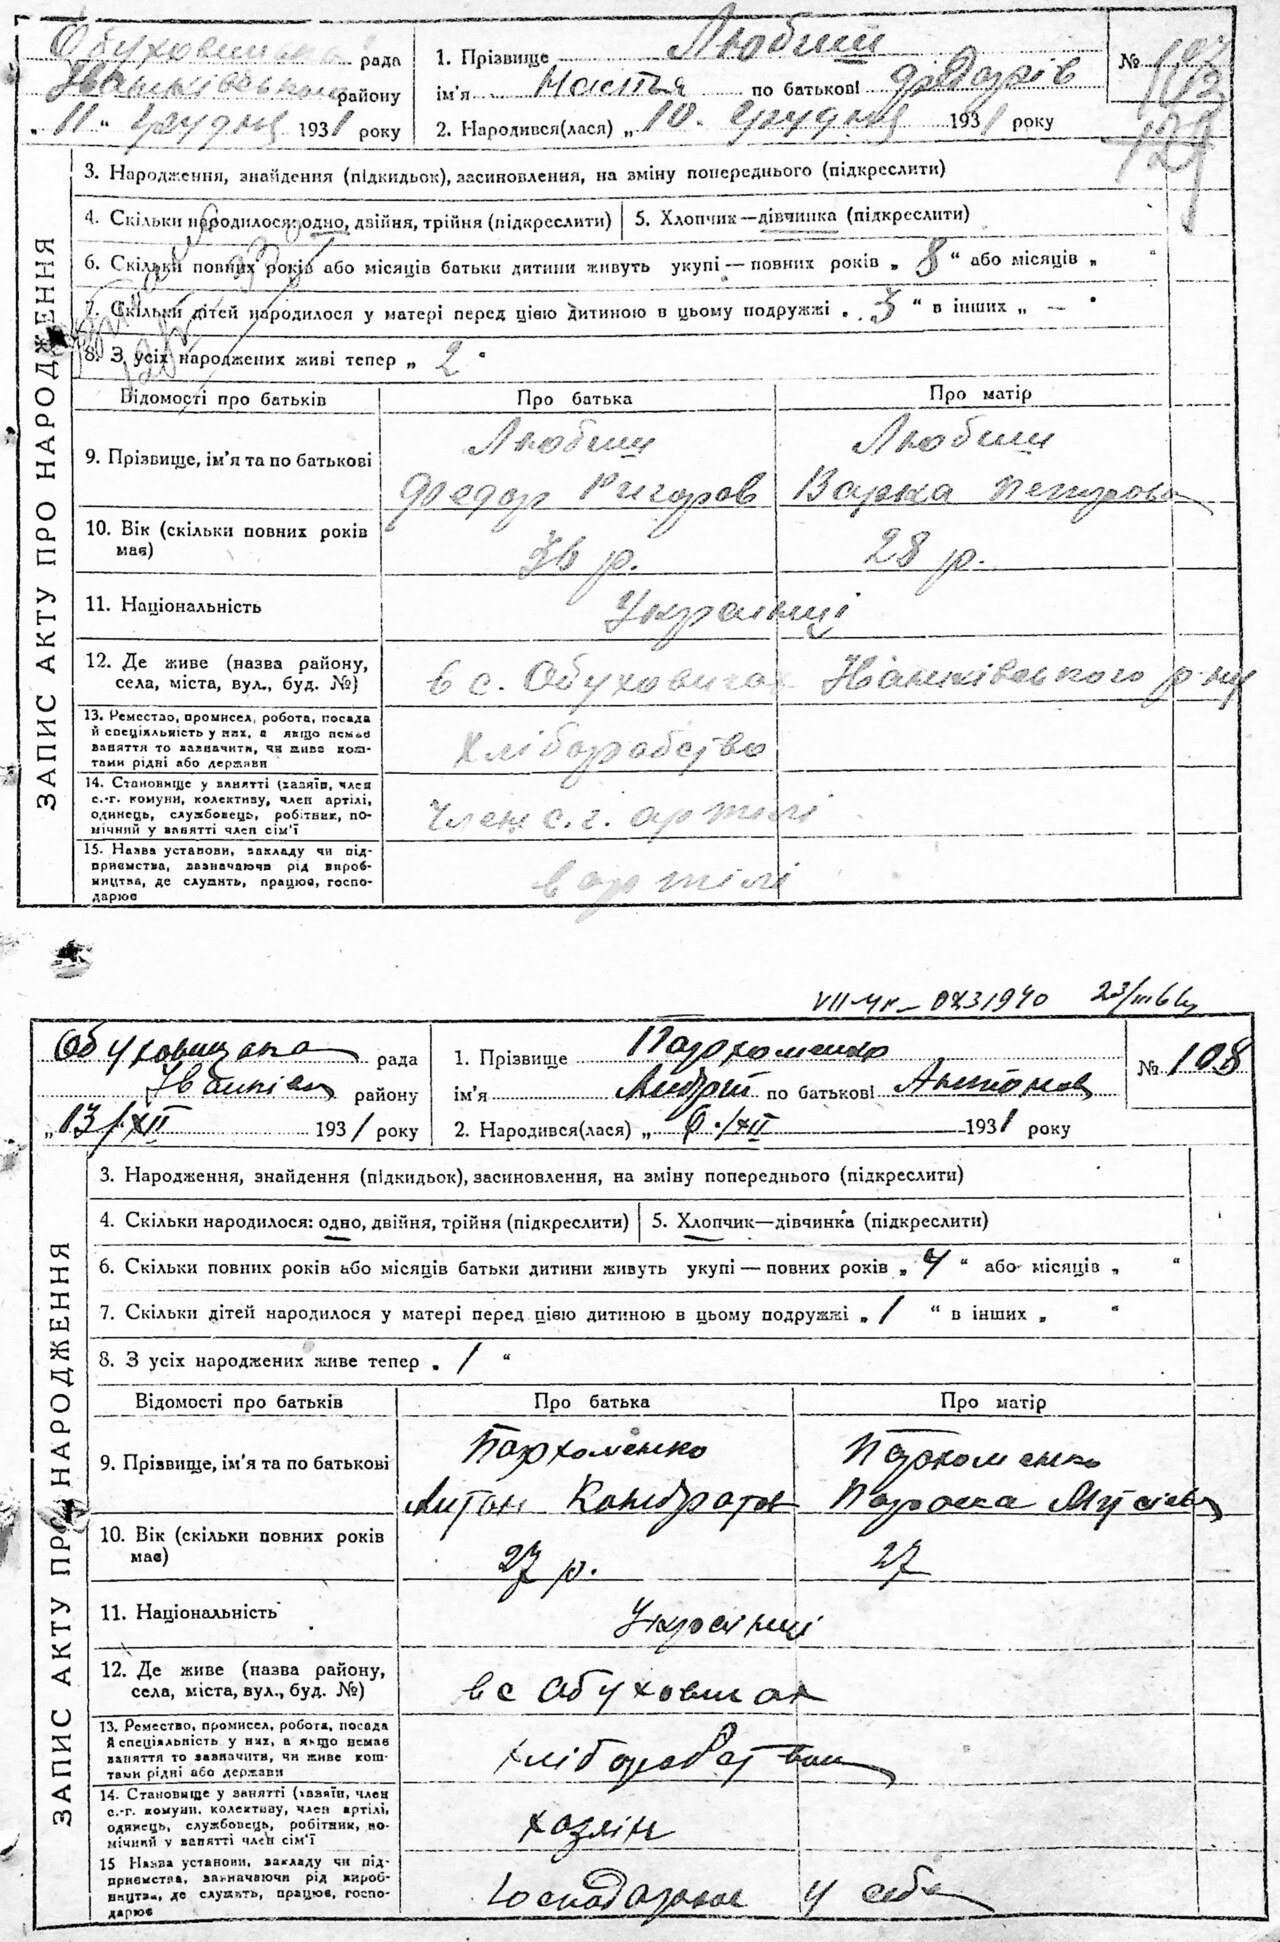 Обуховицька рада
Іваньківського району
„ 11 “ грудня 1931 року
1. Прізвище Любич
ім'я Настья по батькові Федорів
2. Народився(лася) „ 10. грудня 1931 року
№ 107
ЗАПИС АКТУ ПРО НАРОДЖЕННЯ
3. Народження, знайдення (підкидьок), засиновлення, на зміну попереднього (підкреслити)
4. Скільки народилося: одно, двійня, трійня (підкреслити) 5. Хлопчик—дівчинка (підкреслити)
6. Скільки повних років або місяців батьки дитини живуть укупі — повних років „ 8 “ або місяців „ “
7. Скільки дітей народилося у матері перед цією дитиною в цьому подружжі „ 3 “ в інших „ — “
8. З усіх народжених живі тепер „ 2 “
Відомості про батьків Про батька Про матір
9. Прізвище, ім'я та по батькові
Любич Любич
Федор Григоров Варка Петрова
10. Вік (скільки повних років має)
28 р.
11. Національність Українці
12. Де живе (назва району,
села, міста, вул., буд. №)
в с. Обуховичах Іваньківського р-ну
13. Ремество, промисел, робота, посада
й спеціяльність у них, а якщо немає
заняття то зазначити, чи живе кош-
тами рідні або держави
Хліборобство
14. Становище у занятті (хазяїн, член
с.-г. комуни, колективу, член артілі,
одинець, службовець, робітник, по-
мічний у занятті член сім'ї
Член с. г. артілі
15. Назва установи, закладу чи під-
приємства, зазначаючи рід вироб-
ництва, де служить, працює, госпо-
дарює
в артілі
Обуховицька рада
Іваньків району
„ 13/XII 1931 року
1. Прізвище Пархоменко
ім'я Андрій по батькові Антонов
2. Народився(лася) „ 6./XII 1931 року
№ 108
ЗАПИС АКТУ ПРО НАРОДЖЕННЯ
3. Народження, знайдення (підкидьок), засиновлення, на зміну попереднього (підкреслити)
4. Скільки народилося: одно, двійня, трійня (підкреслити) 5. Хлопчик—дівчинка (підкреслити)
6. Скільки повних років або місяців батьки дитини живуть укупі — повних років „ 4 “ або місяців „ “
7. Скільки дітей народилося у матері перед цією дитиною в цьому подружжі „ 1 “ в інших „ “
8. З усіх народжених живе тепер „ 1 “
Відомості про батьків Про батька Про матір
9. Прізвище, ім'я та по батькові
Пархоменко Пархоменко
Антон Кондратов Параска Мусієва
10. Вік (скільки повних років
має)
27 р. 27
11. Національність Українці
12. Де живе (назва району,
села, міста, вул., буд. №)
в с Обуховичах
13. Ремество, промисел, робота, посада
й спеціяльність у них, а якщо немає
заняття то зазначити, чи живе кош-
тами рідні або держави
14. Становище у занятті (хазяїн, член
с.-г. комуни, колективу, член артілі,
одинець, службовець, робітник, по-
мічний у занятті член сім'ї
хазяін
15 Назва установи, закладу чи під-
приємства, зазначаючи рід вироб-
ництва, де служить, працює, госпо-
дарює
Господарює у себе